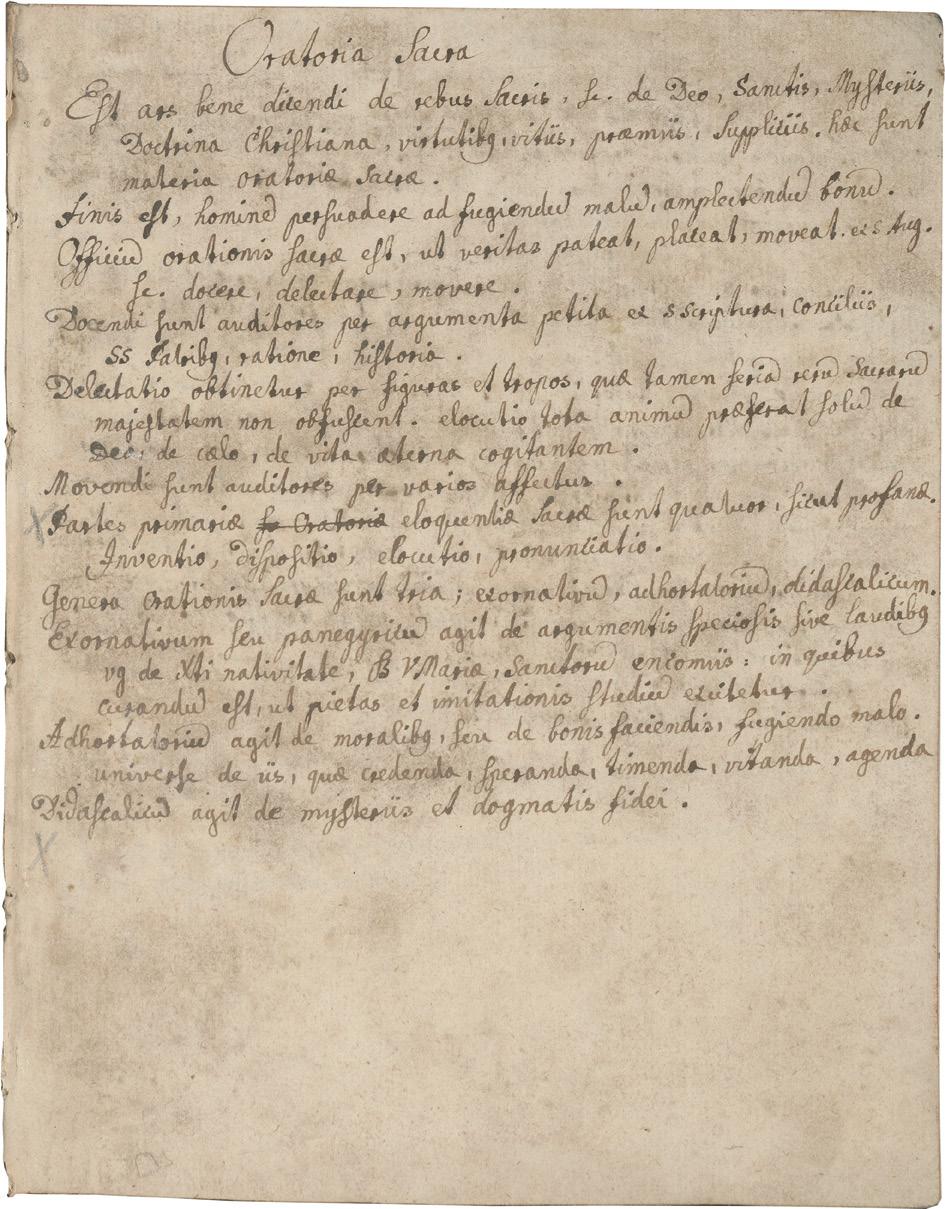 Oratoria Sacra
Est ars bene dicendi de rebus Sacris, sc. de Deo, Sanctis, Mysteriis,
Doctrina Christiana, virtutibq, vitiis, præmiis, Suppliciis. hæc sunt
materia oratoriæ Sacræ.
Finis est, hominē persuadere ad fugiendū malū, amplectendū bonū.
Officiū orationis sacræ est, ut veritas pateat, placeat, moveat. ex S Aug.
sc. docere, delectare, movere.
Docendi sunt auditores per argumenta petita ex S scriptura, conciliis,
SS Patribq, ratione, historia.
Delectatio obtinetur per figuras et tropos, quæ tamen seriā rerū Sacrarū
majestatem non obfuscent. elocutio tota animū præferat solū de
Deo, de cælo, de vita æterna cogitantem.
Movendi sunt auditores per varios affectus.
Partes primariæ Oratoriæ eloquentiæ Sacræ sunt quatuor, sicut profanæ.
Inventio, dispositio, elocutio, pronunciatio.
Genera Orationis Sacræ sunt tria; exornativū, adhortatoriū, didascalicum.
Exornativum seu panegyricū agit de argumentis speciosis sive laudibq
vg de Xti nativitate, B VMariæ, Sanctorū encomiis: in quibus
curandū est, ut pietas et imitationis studiū excitetur.
Adhortatoriū agit de moralibq, seu de bonis faciendis, fugiendo malo.
universe de iis, quæ credenda, speranda, timenda, vitanda, agenda
Didascalicū agit de mysteriis et dogmatis fidei.